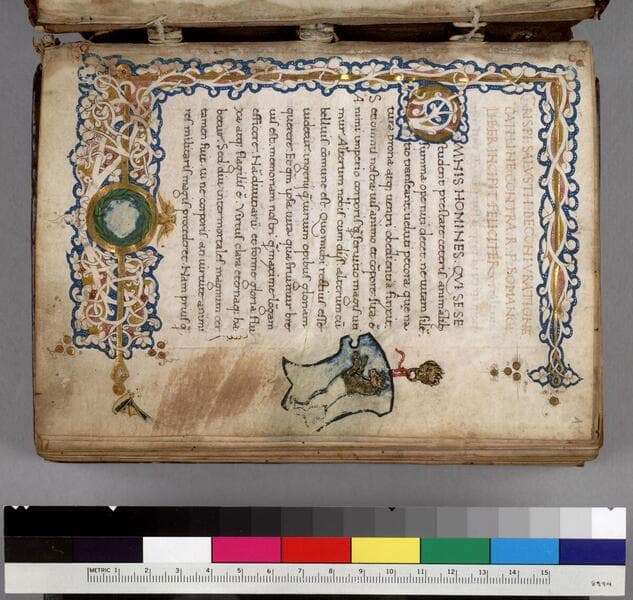 CRISPI SALVSTII DE CONIVRATIONE
CATELINE CONTRA R. P. ROMANA
LIBER INCIPIT FELICITER
OMNIS HOMINES. QVI SE SE
student prestare ceteris animalib
summa ope niti decet. ne uitam silē
tio transeant. ueluti pecora. que na
tura prona. atq; uentri obedientia finxit.
Sed omnis nostra uis animo et corpore sita ē
Animi imperio corporis seruitio magis uti
mur Alterum nobis cum diis. alterum cū
belluis cōmune est. Quo mihi rectius esse
uidetur ingenij q̄ uirium opibus gloriam
querere. Et qm̄ ipsa uita qua fruimur bre
uis est. memoriam nostri q̄ maxime lōgam
efficere. Nā diuitiarū et forme gloria flu
xa atq; fragilis ē. Virtus clara eternaq; ha
betur. Sed diu inter mortales magnum cer
tamen fuit ui ne corporis an uirtute animi
res militaris magis procederet. Nam prius q̄
METRIC 1 2 3 4 5 6 7 8 9 10 11 12 13 14 15